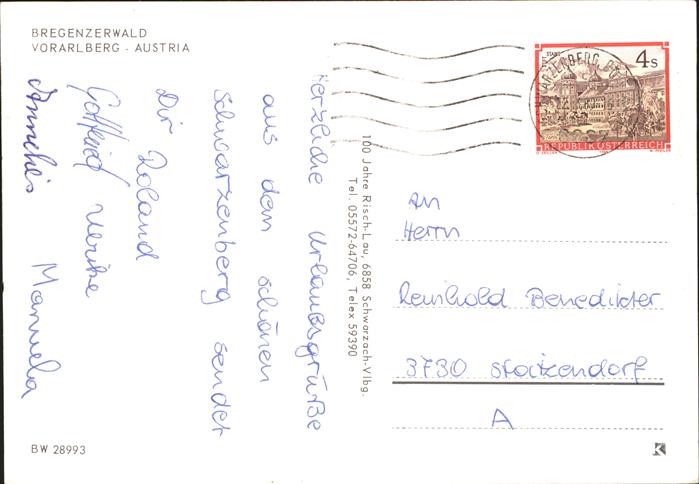 BREGENZERWALD
VORARLBERG - AUSTRIA
Herzliche Urlaubsgrüße
aus dem schönen
Schwarzenberg sendet
Dir Roland
Gottfried Ulrike
Manuela
BW 28993
100 Jahre Risch-Lau, 6858 Schwarzach-Vlbg.
Tel. 05572-64706, Telex 59390
4 S
REPUBLIK ÖSTERREICH
An
Herrn
Reinhold Benedikter
3730 Stoitzendorf
A